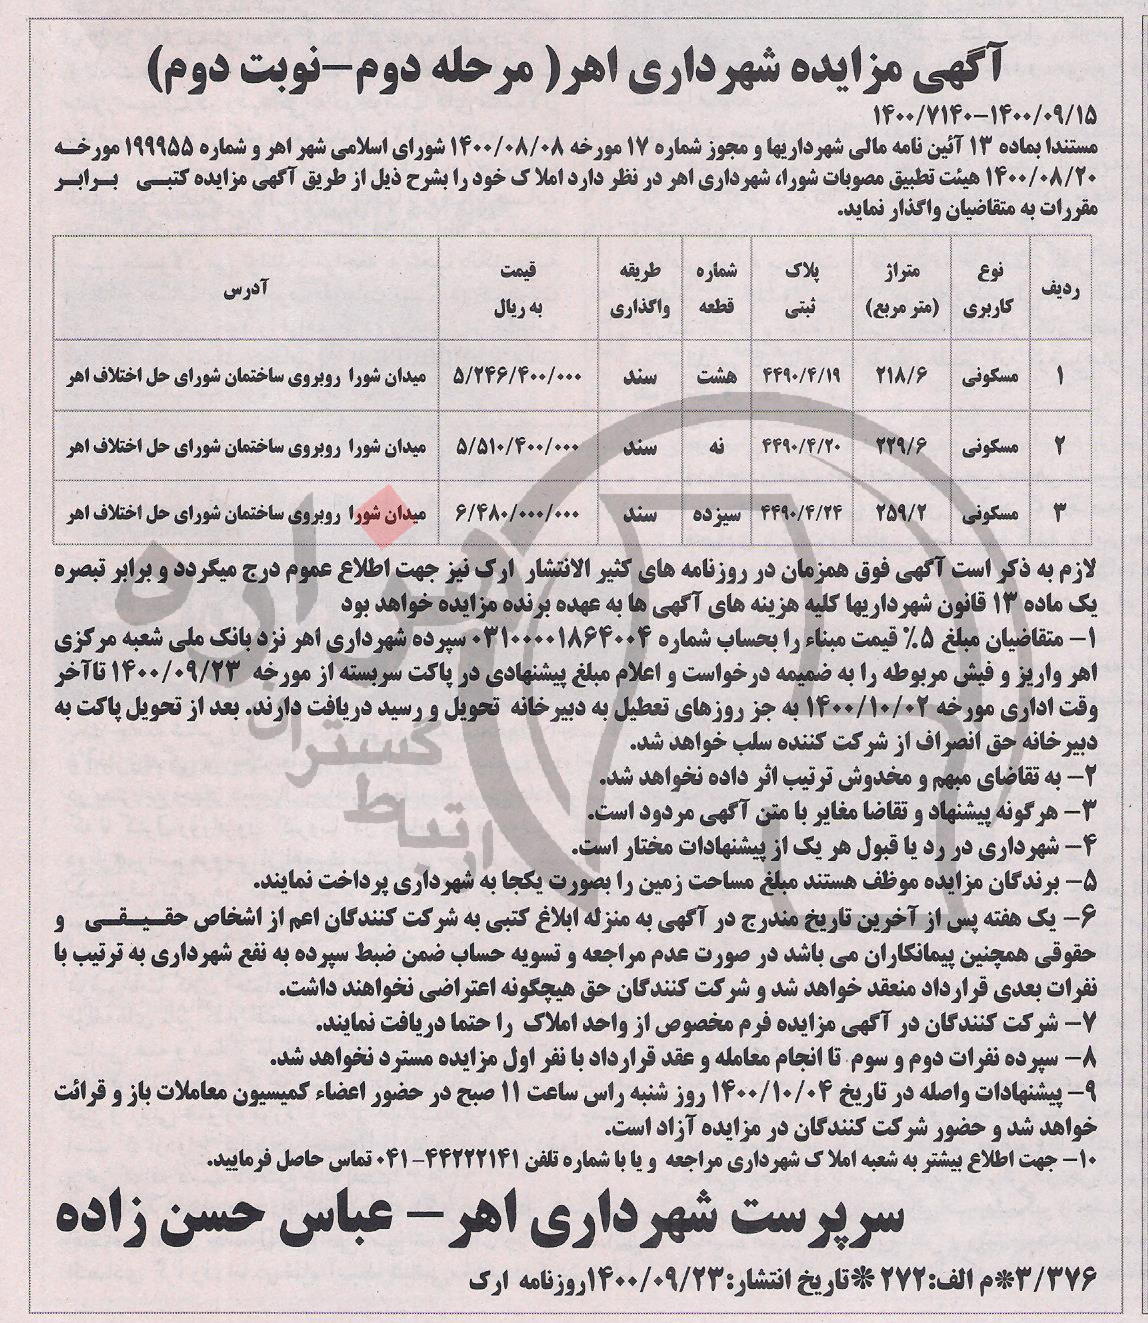 آگهی مزایده شهرداری اهر( مرحله دوم–نوبت دوم)
۱۴۰۰/۷۱۴۰-۱۴۰۰/۰۹/۱۵
مستندا بماده ۱۳ آئین نامه مالی شهرداریها و مجوز شماره ۱۷ مورخه ۱۴۰۰/۰۸/۰۸ شورای اسلامی شهر اهر و شماره ۱۹۹۹۵۵ مورخه
۱۴۰۰/۰۸/۲۰ هیئت تطبیق مصوبات شورا، شهرداری اهر در نظر دارد املاک خود را بشرح ذیل از طریق آگهی مزایده کتبی برابر
مقررات به متقاضیان واگذار نماید.
ردیف | نوع کاربری | متراژ (متر مربع) | پلاک ثبتی | شماره قطعه | طریقه واگذاری | قیمت به ریال | آدرس
۱ | مسکونی | ۲۱۸/۶ | ۴۴۹۰/۴/۱۹ | هشت | سند | ۵/۲۴۶/۴۰۰/۰۰۰ | میدان شورا روبروی ساختمان شورای حل اختلاف اهر
۲ | مسکونی | ۲۲۹/۶ | ۴۴۹۰/۴/۲۰ | نه | سند | ۵/۵۱۰/۴۰۰/۰۰۰ | میدان شورا روبروی ساختمان شورای حل اختلاف اهر
۳ | مسکونی | ۲۵۹/۲ | ۴۴۹۰/۴/۲۴ | سیزده | سند | ۶/۴۸۰/۰۰۰/۰۰۰ | میدان شورا روبروی ساختمان شورای حل اختلاف اهر
لازم به ذکر است آگهی فوق همزمان در روزنامه های کثیر الانتشار ارک نیز جهت اطلاع عموم درج میگردد و برابر تبصره
یک ماده ۱۳ قانون شهرداریها کلیه هزینه های آگهی ها به عهده برنده مزایده خواهد بود
۱- متقاضیان مبلغ ۵% قیمت مبناء را بحساب شماره ۰۳۱۰۰۰۰۱۸۶۴۰۰۴ سپرده شهرداری اهر نزد بانک ملی شعبه مرکزی
اهر واریز و فیش مربوطه را به ضمیمه درخواست و اعلام مبلغ پیشنهادی در پاکت سربسته از مورخه ۱۴۰۰/۰۹/۲۳ تاآخر
وقت اداری مورخه ۱۴۰۰/۱۰/۰۲ به جز روزهای تعطیل به دبیرخانه تحویل و رسید دریافت دارند. بعد از تحویل پاکت به
دبیرخانه حق انصراف از شرکت کننده سلب خواهد شد.
۲- به تقاضای مبهم و مخدوش ترتیب اثر داده نخواهد شد.
۳- هرگونه پیشنهاد و تقاضا مغایر با متن آگهی مردود است.
۴- شهرداری در رد یا قبول هر یک از پیشنهادات مختار است.
۵- برندگان مزایده موظف هستند مبلغ مساحت زمین را بصورت یکجا به شهرداری پرداخت نمایند.
۶- یک هفته پس از آخرین تاریخ مندرج در آگهی به منزله ابلاغ کتبی به شرکت کنندگان اعم از اشخاص حقیقی و
حقوقی همچنین پیمانکاران می باشد در صورت عدم مراجعه و تسویه حساب ضمن ضبط سپرده به نفع شهرداری به ترتیب با
نفرات بعدی قرارداد منعقد خواهد شد و شرکت کنندگان حق هیچگونه اعتراضی نخواهند داشت.
۷- شرکت کنندگان در آگهی مزایده فرم مخصوص از واحد املاک را حتما دریافت نمایند.
۸- سپرده نفرات دوم و سوم تا انجام معامله و عقد قرارداد با نفر اول مزایده مسترد نخواهد شد.
۹- پیشنهادات واصله در تاریخ ۱۴۰۰/۱۰/۰۴ روز شنبه راس ساعت ۱۱ صبح در حضور اعضاء کمیسیون معاملات باز و قرائت
خواهد شد و حضور شرکت کنندگان در مزایده آزاد است.
۱۰- جهت اطلاع بیشتر به شعبه املاک شهرداری مراجعه و یا با شماره تلفن ۴۴۲۲۲۱۴۱-۰۴۱ تماس حاصل فرمایید.
سرپرست شهرداری اهر– عباس حسن زاده
۳/۳۷۶❊م الف:۲۷۲ ❊تاریخ انتشار:۱۴۰۰/۰۹/۲۳روزنامه ارک
هزاره
ارتباط گستران